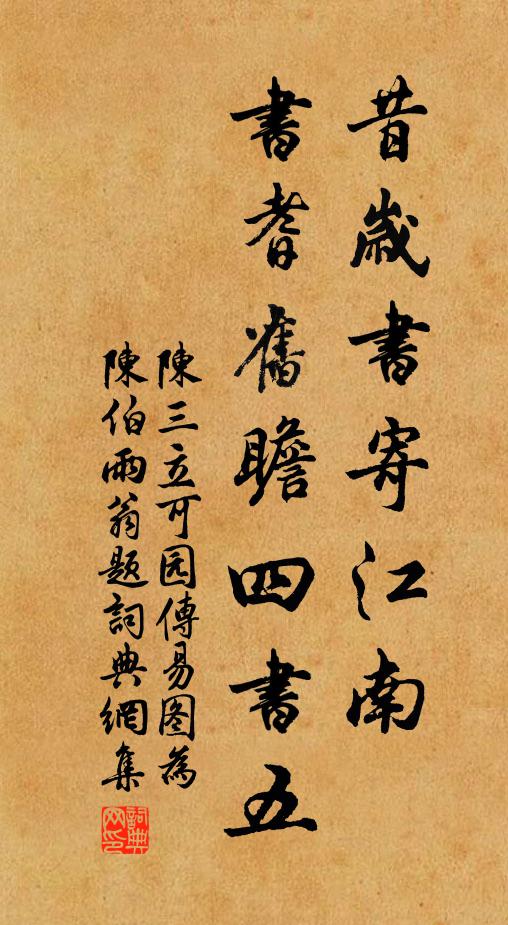 昔歲書寄江南
書耆舊瞻四書五
陳三立可园傳易图為
陳伯雨翁題詞典網集
詞典网印